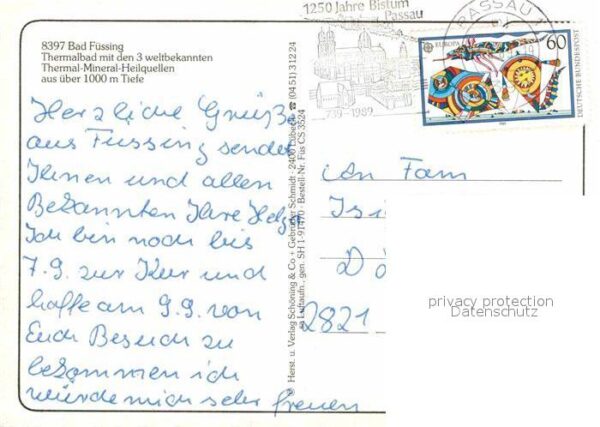 8397 Bad Füssing
Thermalbad mit den 3 weltbekannten
Thermal-Mineral-Heilquellen
aus über 1000 m Tiefe
Herzliche Grüße
aus Füssing sendet
Ihnen und allen
Bekannten Ihre Helga
Ich bin noch bis
7.9. zur Kur und
hoffe am 9.9. von
Euch Besuch zu
bekommen ich
würde mich sehr freuen
Herst. u. Verlag Schöning & Co + Gebrüder Schmidt · 2400 Lübeck ☎ (04 51) 312 24
Luftaufn., gen. SH 1-91470 · Bestell-Nr. Füs CS 3524
1250 Jahre Bistum
Passau
739-1989
PASSAU 1
EUROPA
60
DEUTSCHE BUNDESPOST
An Fam
Is
Dö
2821
privacy protection
Datenschutz